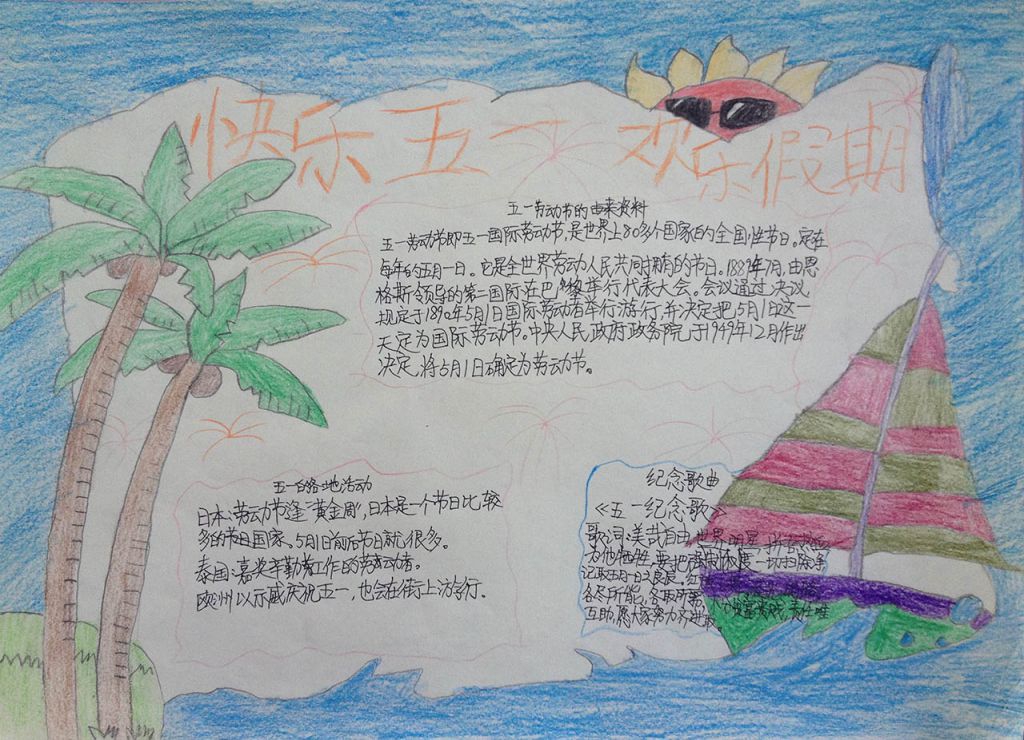 快乐五一 欢乐假期
五一劳动节的由来资料
五一劳动节即五一国际劳动节,是世界上80多个国家的全国性节日。定在
每年的五月一日。它是全世界劳动人民共同拥有的节日。1889年7月,由恩
格斯领导的第二国际在巴黎举行代表大会。会议通过决议
规定于1890年5月1日国际劳动者举行游行,并决定把5月1日这一
天定为国际劳动节。中央人民政府政务院于1949年12月作出
决定,将5月1日确定为劳动节。
五一的各地活动
日本:劳动节逢"黄金周",日本是一个节日比较
多的节日国家。5月1日前后节日就很多。
泰国:嘉奖辛勤工作的劳动者。
欧州以示威庆祝五一,也会在街上游行。
纪念歌曲
《五一纪念歌》
歌词:美哉自由,世界明星,拚
为他牺牲,要把强制
一切扫除净
记取五月一日之良辰。红
各尽所能,各取所需,
互助,愿大家努力齐进取。